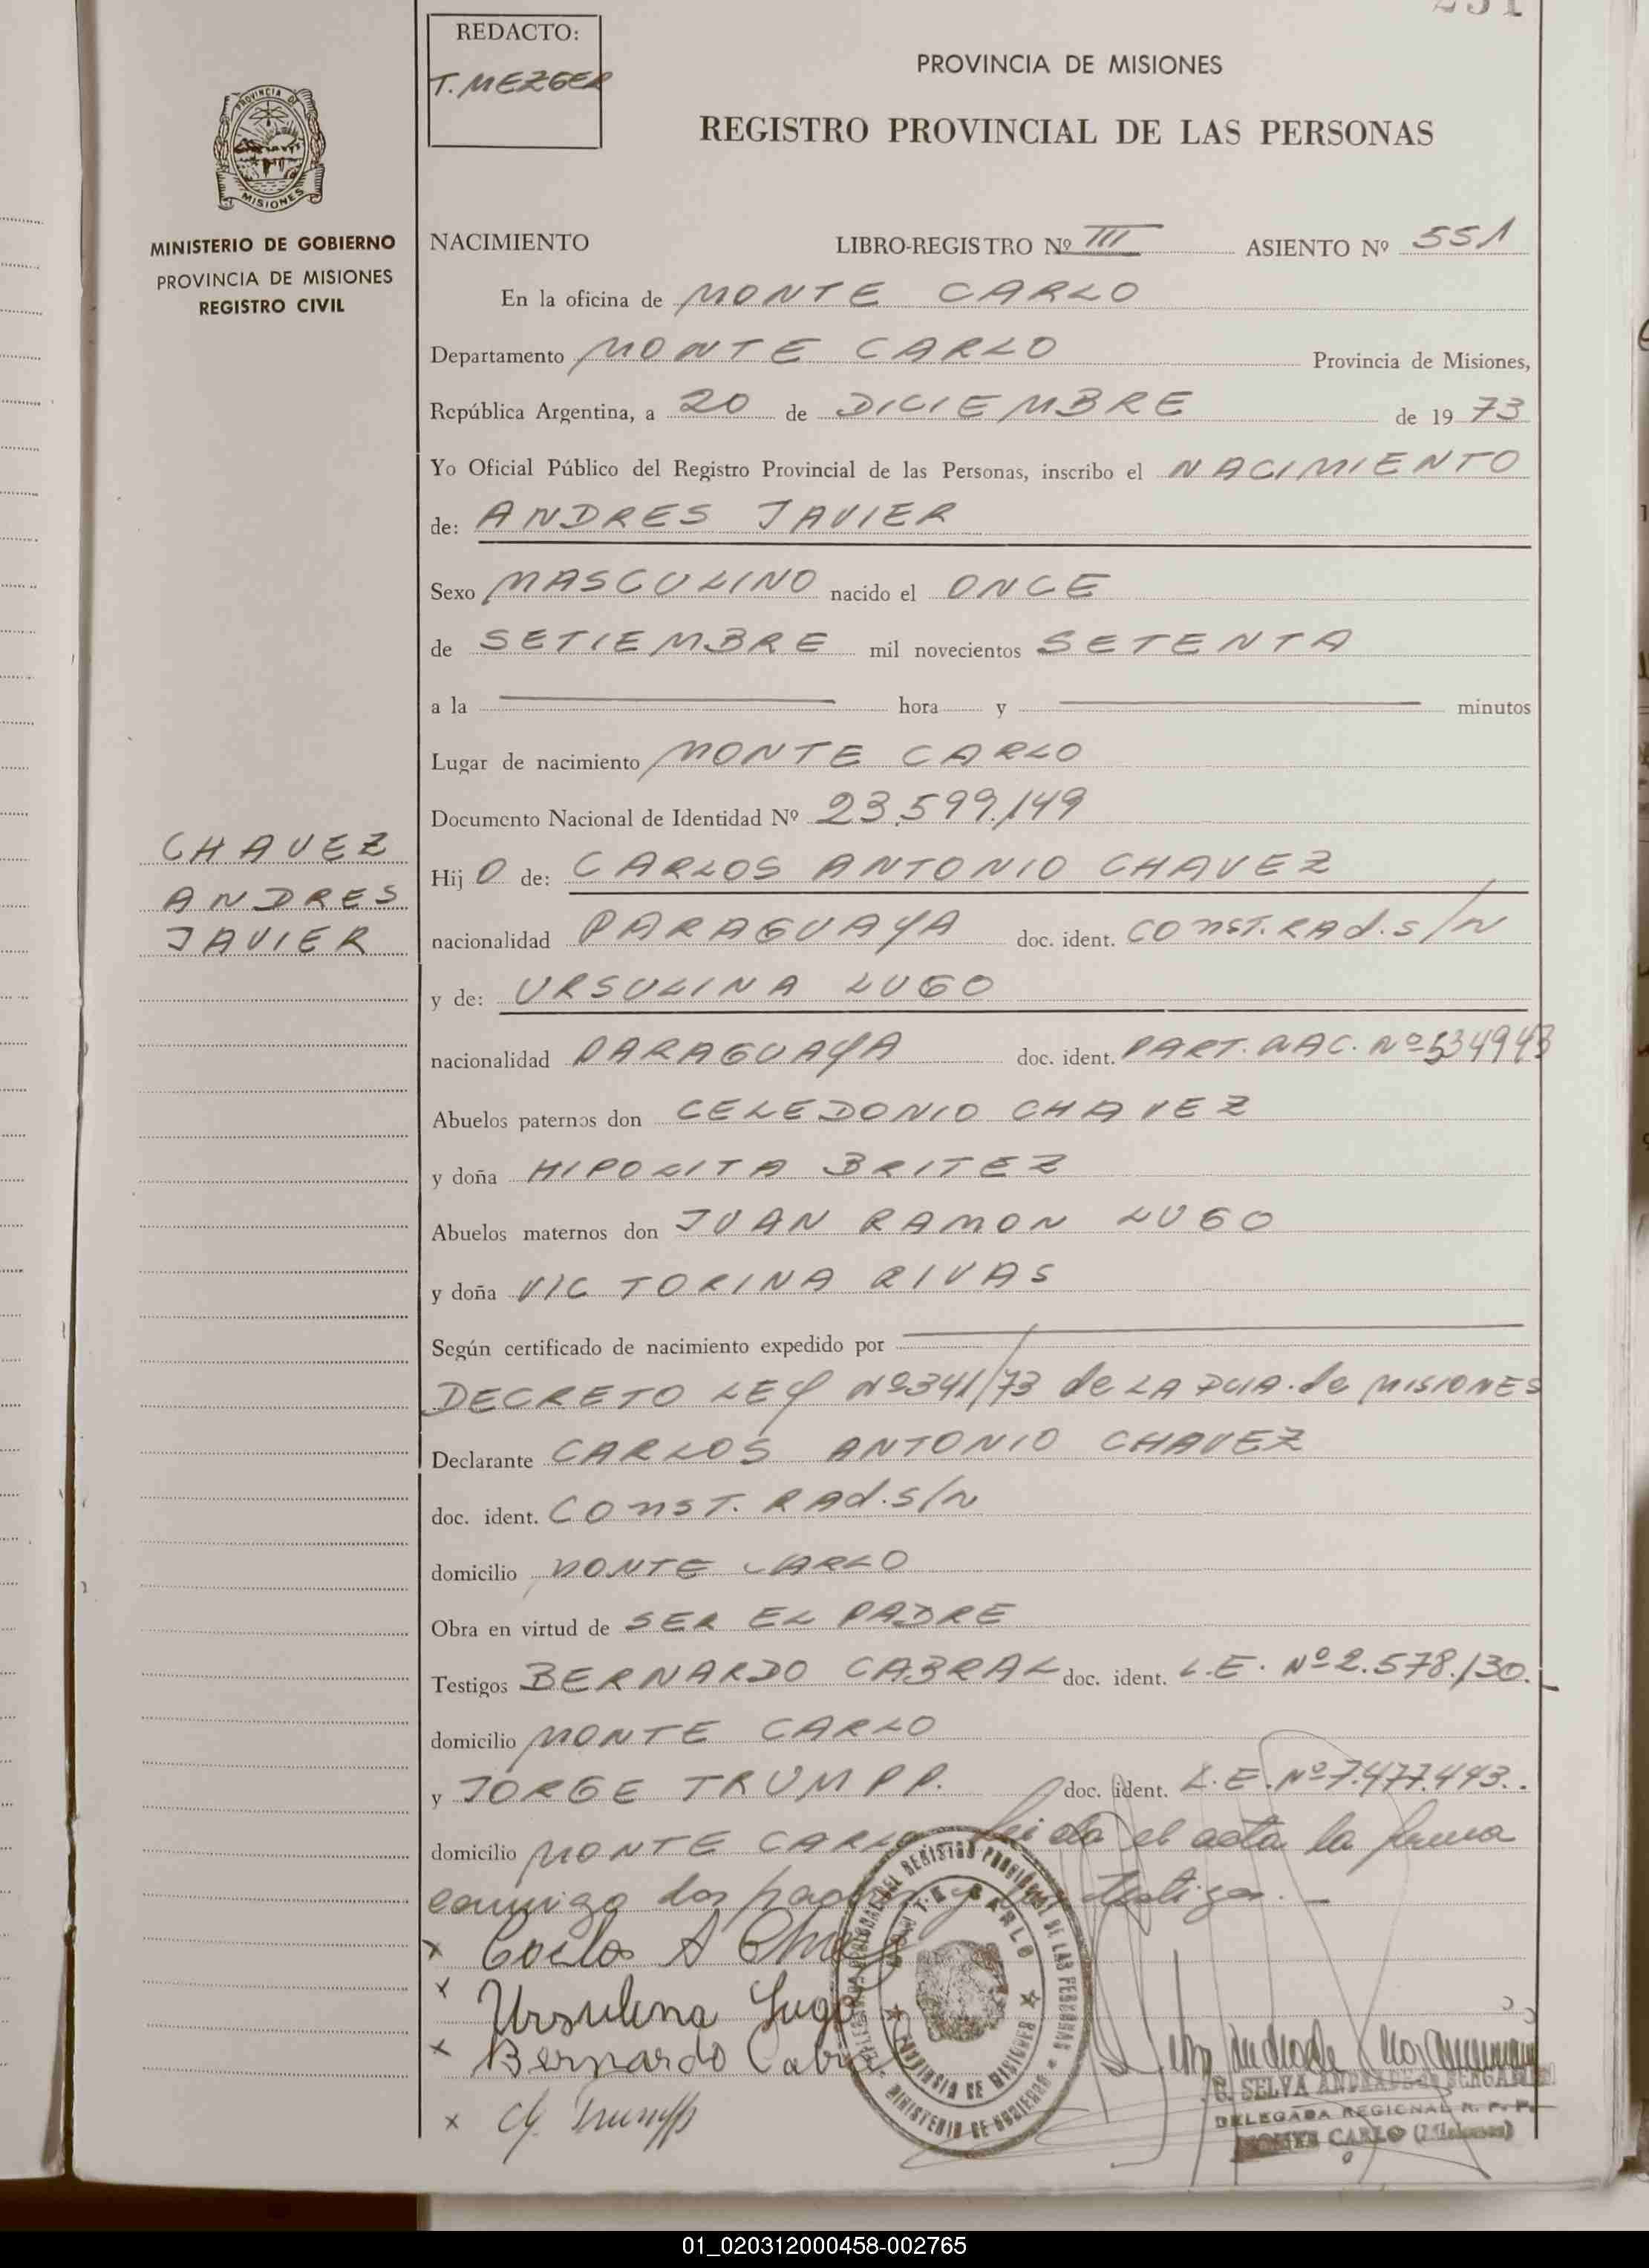 REDACTO:
T. MEZGER
PROVINCIA DE MISIONES
REGISTRO PROVINCIAL DE LAS PERSONAS
PROVINCIA DE
MISIONES
MINISTERIO DE GOBIERNO
PROVINCIA DE MISIONES
REGISTRO CIVIL
NACIMIENTO LIBRO-REGISTRO Nº III ASIENTO Nº 551
En la oficina de MONTE CARLO
Departamento MONTE CARLO Provincia de Misiones,
República Argentina, a 20 de DICIEMBRE de 19 73
Yo Oficial Público del Registro Provincial de las Personas, inscribo el NACIMIENTO
de: ANDRES JAVIER
Sexo MASCULINO nacido el ONCE
de SETIEMBRE mil novecientos SETENTA
a la hora y minutos
Lugar de nacimiento MONTE CARLO
Documento Nacional de Identidad Nº 23.599.149
CHAVEZ
ANDRES
JAVIER
Hij O de: CARLOS ANTONIO CHAVEZ
nacionalidad PARAGUAYA doc. ident. CONST. RAD. S/N
y de: URSULINA LUGO
nacionalidad PARAGUAYA doc. ident. PART. NAC. Nº 534943
Abuelos paternos don CELEDONIO CHAVEZ
y doña HIPOLITA BRITEZ
Abuelos maternos don JUAN RAMON LUGO
y doña VICTORINA RIVAS
Según certificado de nacimiento expedido por
DECRETO LEY Nº 341/73 de LA PCIA. de MISIONES
Declarante CARLOS ANTONIO CHAVEZ
doc. ident. CONST. RAD. S/N
domicilio MONTE CARLO
Obra en virtud de SER EL PADRE
Testigos BERNARDO CABRAL doc. ident. L.E. Nº 2.578.130.
domicilio MONTE CARLO
y JORGE TRUMPP. doc. ident. L.E. Nº 7.477.443..
domicilio MONTE CARLO leida el acta la firma
conmigo los padres y los testigos. -
x Carlos A Chavez
x Ursulina Lugo
x Bernardo Cabral
x Trumpp
MONTE CARLO
PROVINCIA DE MISIONES
MINISTERIO DE GOBIERNO
DELEGADA REGIONAL R. P. P.
MONTE CARLO (Misiones)
01_020312000458-002765